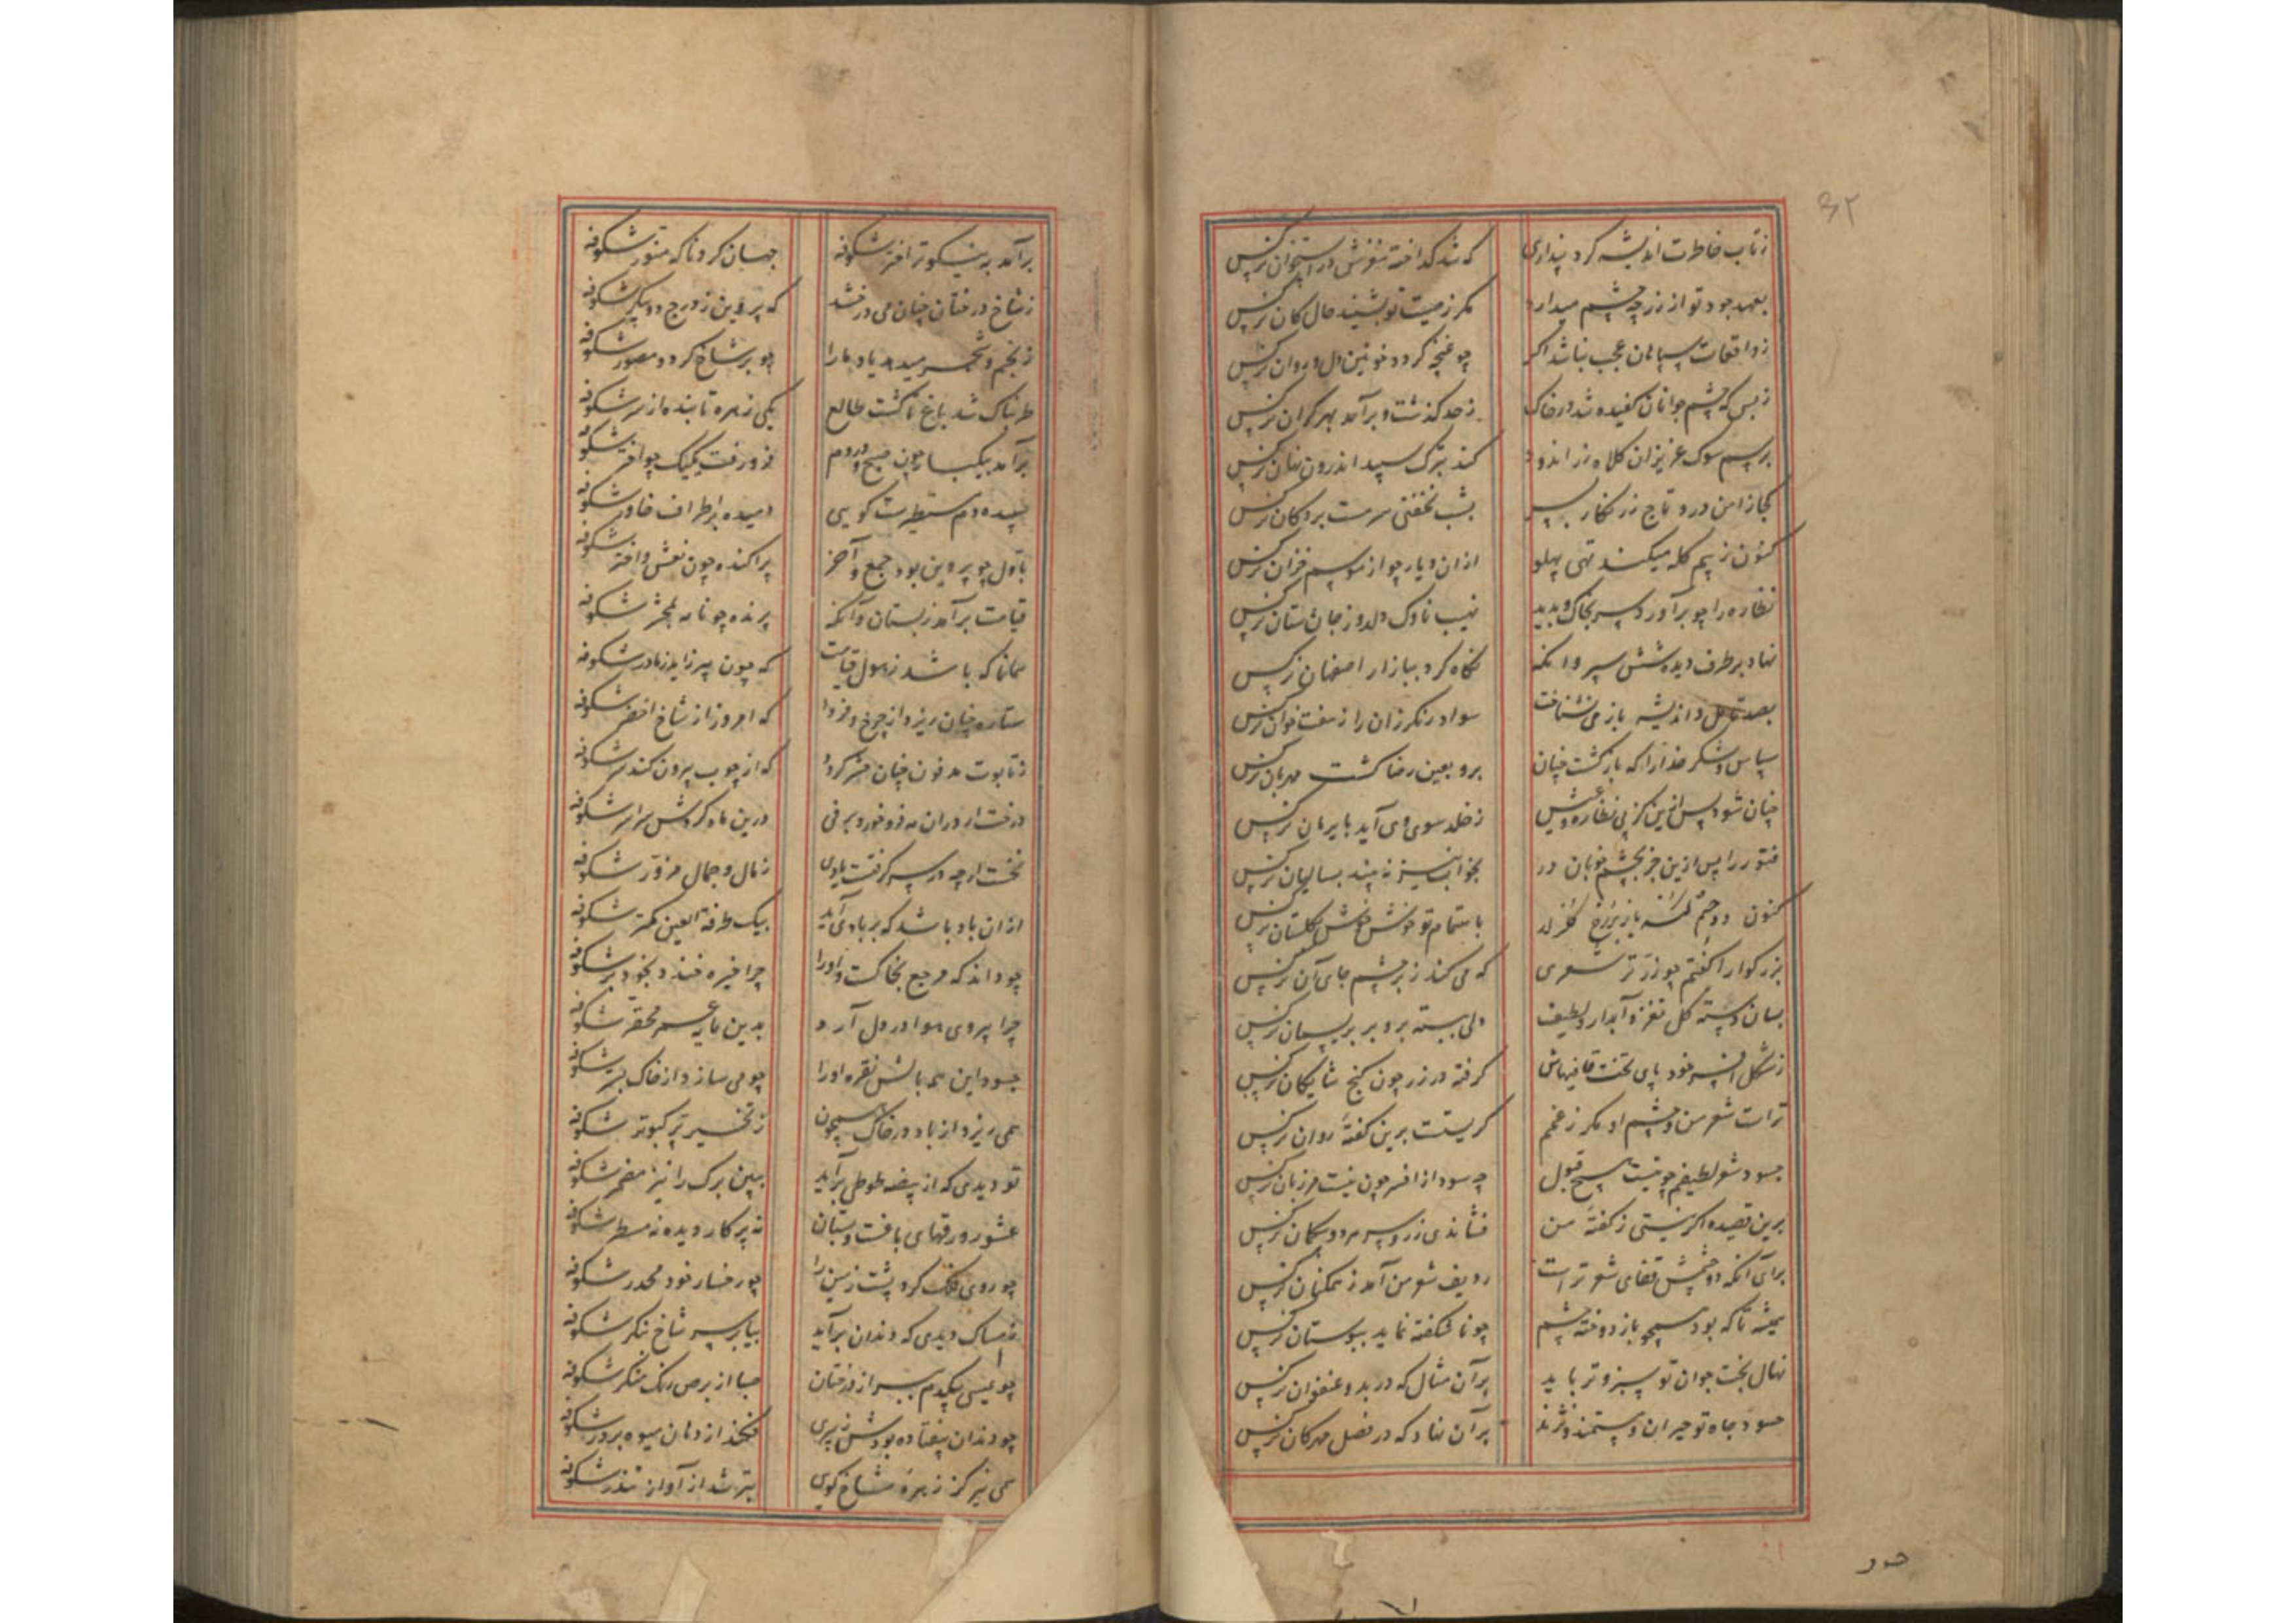 ۳۲
ز تاب خاطرت اندیشه کرد پنداری که شد گداخته مغزش در استخوان نرگس
بعهد جود تو از زر چه چشم میدارد مگر ز صیت تو بشنید حال کان نرگس
ز واقعات سپاهان عجب نباشد اگر چو غنچه گردد خونین دل و روان نرگس
ز بس که چشم جوانان کفیده شد در خاک ز حد گذشت و برآمد بهر کران نرگس
برسم سوک عزیزان کلاه زراندود کند بترک سپید اندرون نهان نرگس
کجا ز امن درو تاج زرنگار بسر بشب نخفتی سرمست بر دکان نرگس
کنون ز بیم کله میکند تهی پهلو ازان دیار چو از موسم خزان نرگس
نظاره را چو برآورد سر بخاک و بدید نهیب ناوک دلدوز جان ستان نرگس
نهاد بر طرف دیده شش سپر وانگه نگاه کرد ببازار اصفهان نرگس
بصد تامل و اندیشه باز می نشناخت سواد رنگرزان را ز هفت خوان نرگس
سپاس و شکر خدا را که بازگشت چنان برو بعین رضا گشت مهربان نرگس
چنان شود پس ازین کز پی نظاره و عیش ز خلد سوی وی آید بایرمان نرگس
فتور را پس ازین جز بچشم خوبان در بخواب نیز نه بیند بسالیان نرگس
کنون دو چشم باز بر رخ گلزار باهتمام تو خوش خوش گلستان نرگس
بزرگوارا گفتم چو زر تر شعری که می کند ز بر چشم جای آن نرگس
بسان دسته گل نغز و آبدار و لطیف ولی ببسته برو بر بریسمان نرگس
ز شکل افسر خود پای تخت قافیهاش گرفته در زر چون گنج شایگان نرگس
تراست شعر من و چشم او مگر ز غمم گریست برین گفته روان نرگس
حسود شعر لطیفم چو نیست هیچ قبول چه سود از افسر چون نیست مرزبان نرگس
برین قصیده اگر نیستی ز گفته من فشاندی زر و سر مرد و سکان نرگس
برای آنکه دو چشمش قفای شعر تر است ردیف شعر من آمد ز همگنان نرگس
همیشه تا که بود همچو باز دوخته چشم چو ناشکفته نماید ببوستان نرگس
نهال بخت جوان تو سبز و تر باید بر آن مثال که در بدو عنفوان نرگس
حسود جاه تو حیران و مستمند و نژند بر آن نهاد که در فصل مهرگان نرگس
حسود
برآمد به نیکوتر اختر شکوفه جهان کرد ناگه منور شکوفه
ز شاخ درختان چنان می درفشد که پروین ز درج دو پیکر شکوفه
ز نجم و شجر میدهد یاد ما را چو بر شاخ گردد مصور شکوفه
طربناک شد باغ تا گشت طالع یکی زهره تابنده از هر شکوفه
برآمد بیکبار چون صبح و در دم فرو رفت یکیک چو اختر شکوفه
سپیده دم مستطیرست گویی دمیده ز اطراف خاور شکوفه
باول چو پروین بود جمع و آخر پراکنده چون نعش و اختر شکوفه
قیامت برآمد ز بستان و آنکه پرنده چو نامه بمحشر شکوفه
همانا که باشد ز هول قیامت که چون پیر زاید ز مادر شکوفه
ستاره چنان ریزد از چرخ فردا که امروز از شاخ اخضر شکوفه
ز تابوت مدفون چنان حشر گردد که از چوب بیرون کند سر شکوفه
درخت ار دران مه فرو خورد برفی درین ماه کردش سراسر شکوفه
نخست ار چه در سر گرفت بادی ز مال و جمال مزور شکوفه
ازان باد باشد که بر باد آید بیک طرفة العین کمتر شکوفه
چو داند که مرجع بخاکست او را چرا خیره خندد بخود بر شکوفه
چرا پیروی هوا در دل آرد بدین مایه عمر محقر شکوفه
چه سود این همه بالش نقره او را چو می سازد از خاک بستر شکوفه
همی ریزد از باد در خاک همچون ز تخسیر پر کبوتر شکوفه
تو دیدی که از بیضه طوطی برآید ببین برگ را نیز مضمر شکوفه
عشور ورقهای بافت بستان نه پرکار دیده نه مسطر شکوفه
چو روی فلک کرد پشت زمین را چو رخسار خود مجدر شکوفه
ز مسواک دیدی که دندان برآید بیا بر سر شاخ بنگر شکوفه
چو عیسی بیکدم ببرد از درختان صبا از برص رنگ بنگر شکوفه
چو دندان بیفتاده بودش ز پیری بخندد از دهان میوه پرور شکوفه
می نیز کز زهره شاخ گویی بترشد از آواز تندر شکوفه